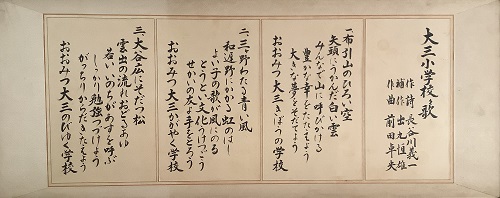 大三小学校歌
作詩 長谷川義一
補作 出丸恒雄
作曲 前田卓央
一、布引山のひろい空
矢頭にうかんだ白い雲
みんなで山に呼びかける
豊かな幸をたたえよう
大きな夢をそだてよう
おおみつ大三きぼうの学校
二、三ヶ野わたる青い風
和遅野にかかる虹のはし
よい子の歌が風にのる
とうとい文化うけつごう
せかいの友と手をとろう
おおみつ大三かがやく学校
三、大谷広にそだつ松
雲出の流れおどるあゆ
若いいのちがあすを呼ぶ
しっかり勉強つづけよう
がっちりからだきたえよう
おおみつ大三のびゆく学校